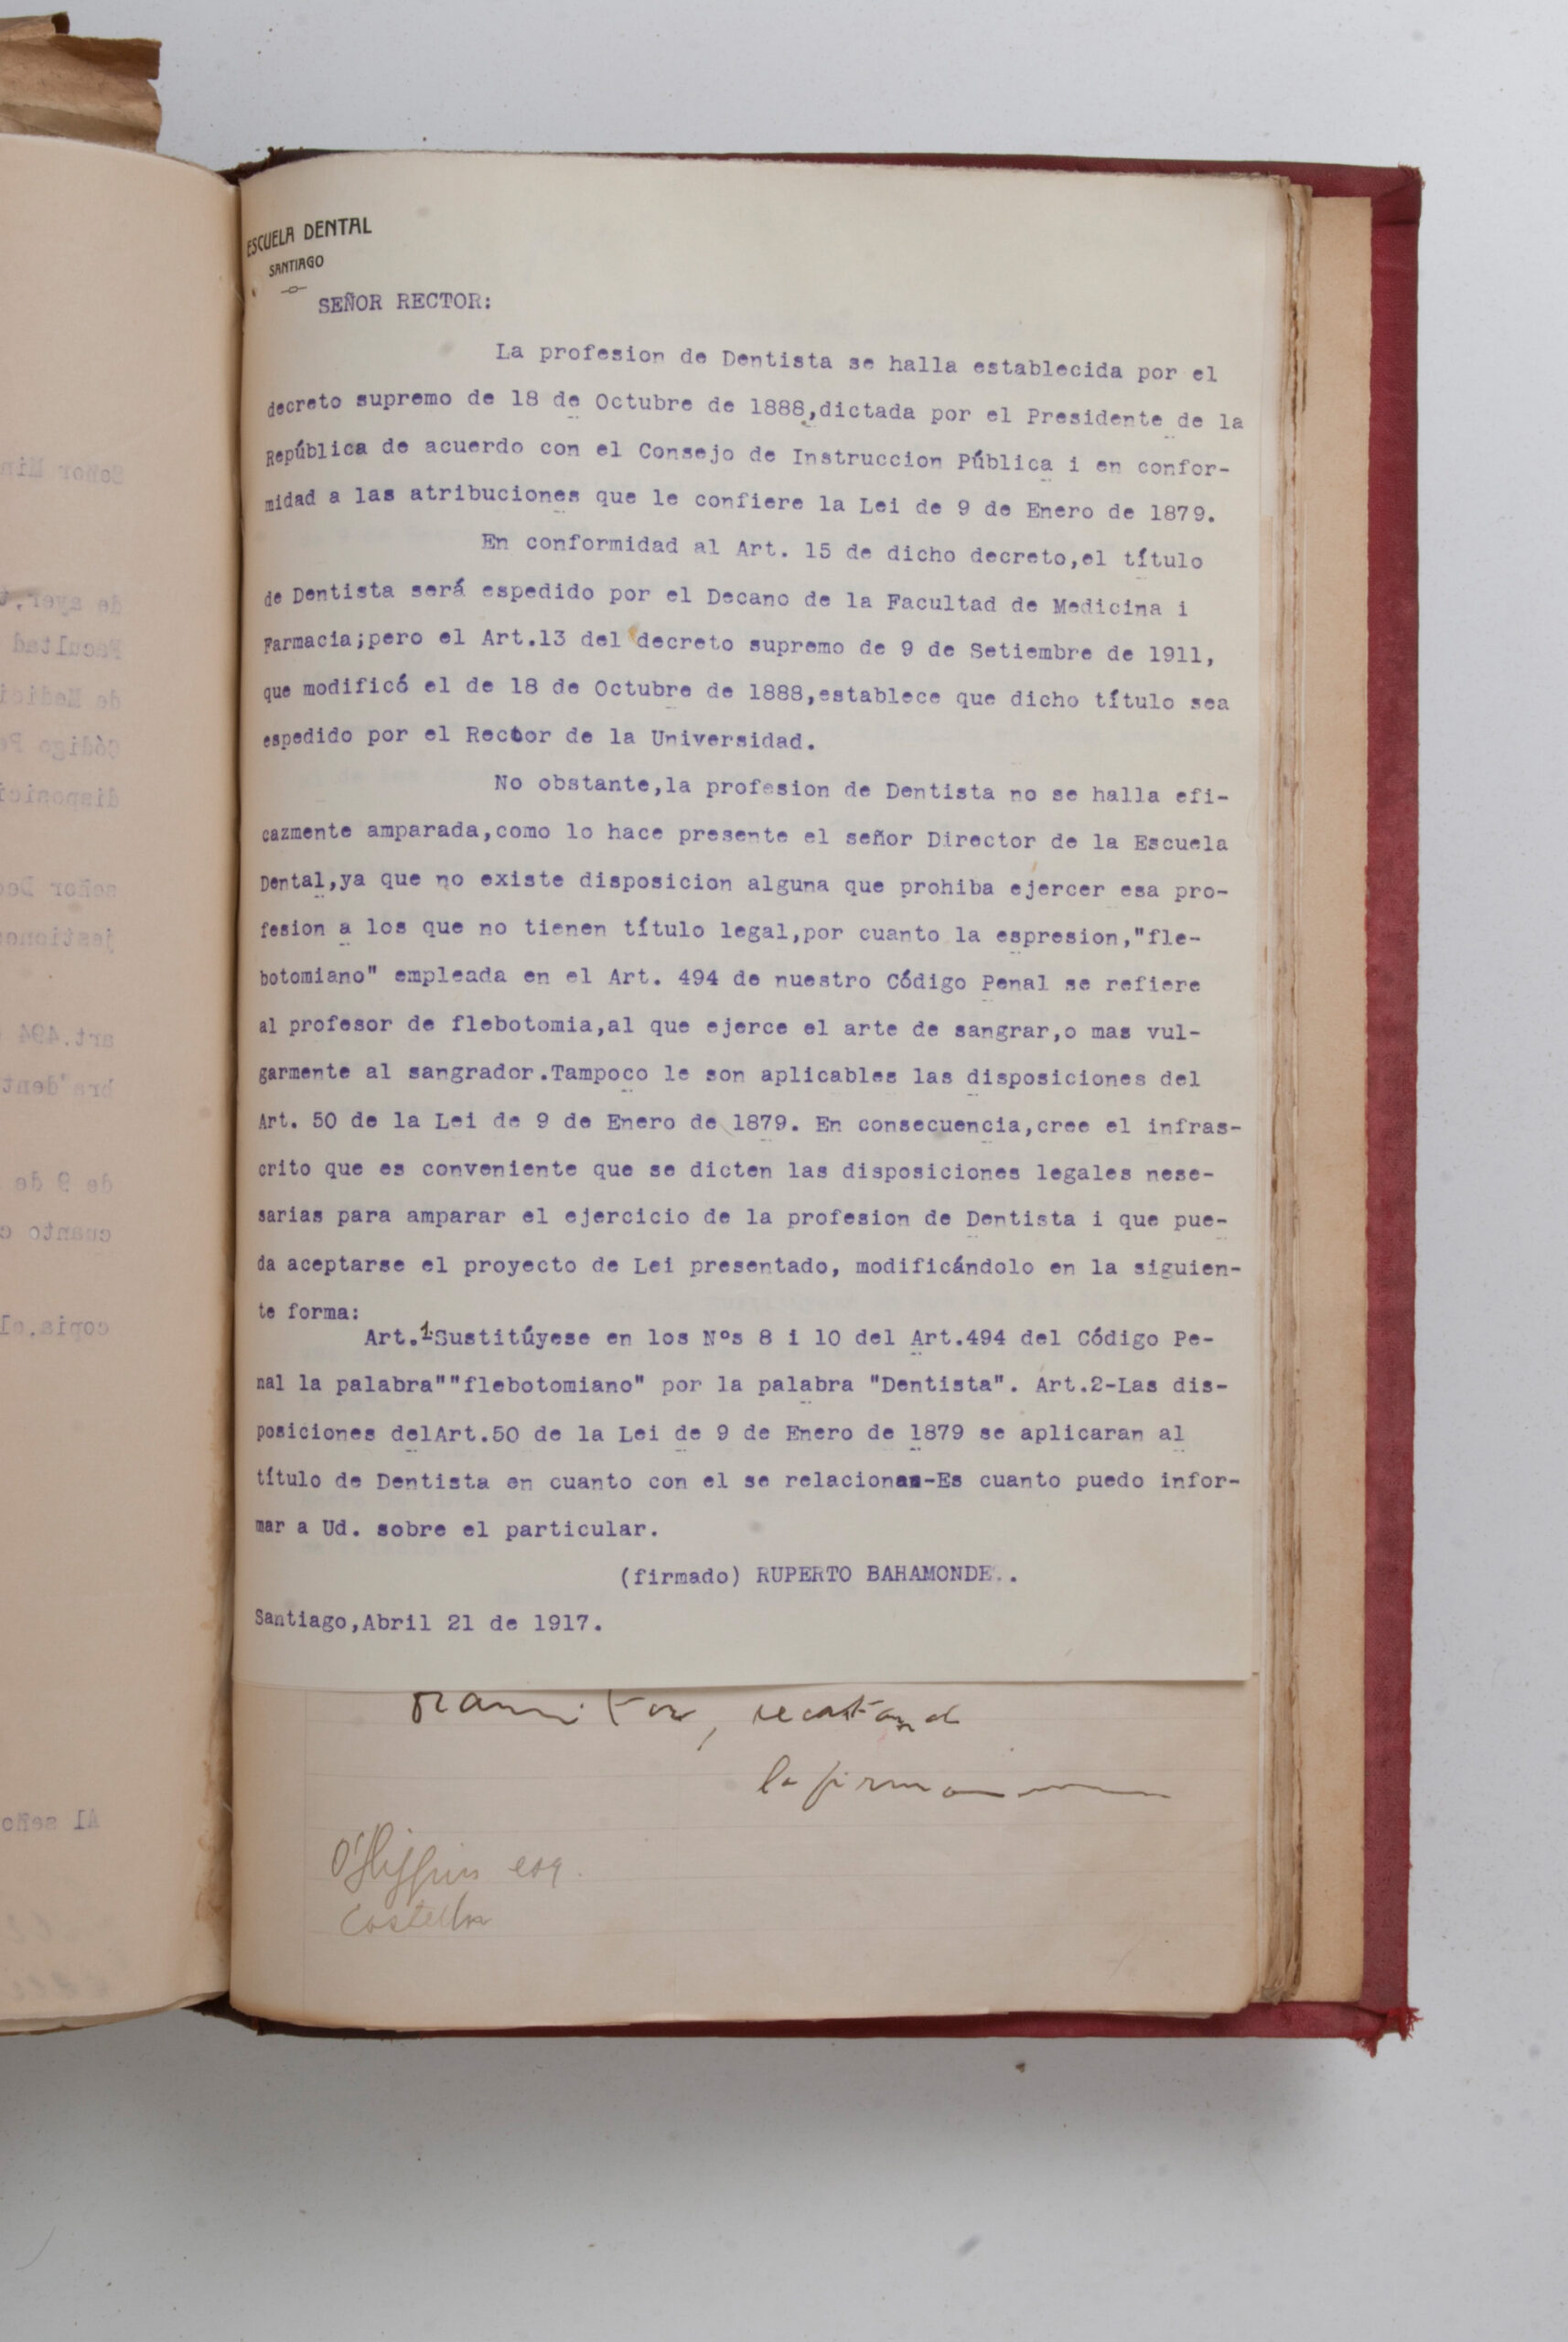 ESCUELA DENTAL
SANTIAGO
SEÑOR RECTOR:
La profesion de Dentista se halla establecida por el
decreto supremo de 18 de Octubre de 1888,dictada por el Presidente de la
República de acuerdo con el Consejo de Instruccion Pública i en confor-
midad a las atribuciones que le confiere la Lei de 9 de Enero de 1879.
En conformidad al Art. 15 de dicho decreto,el título
de Dentista será espedido por el Decano de la Facultad de Medicina i
Farmacia;pero el Art.13 del decreto supremo de 9 de Setiembre de 1911,
que modificó el de 18 de Octubre de 1888,establece que dicho título sea
espedido por el Rector de la Universidad.
No obstante,la profesion de Dentista no se halla efi-
cazmente amparada,como lo hace presente el señor Director de la Escuela
Dental,ya que no existe disposicion alguna que prohiba ejercer esa pro-
fesion a los que no tienen título legal,por cuanto la espresion,"fle-
botomiano" empleada en el Art. 494 de nuestro Código Penal se refiere
al profesor de flebotomia,al que ejerce el arte de sangrar,o mas vul-
garmente al sangrador.Tampoco le son aplicables las disposiciones del
Art. 50 de la Lei de 9 de Enero de 1879. En consecuencia,cree el infras-
crito que es conveniente que se dicten las disposiciones legales nese-
sarias para amparar el ejercicio de la profesion de Dentista i que pue-
da aceptarse el proyecto de Lei presentado, modificándolo en la siguien-
te forma:
Art.1-Sustitúyese en los Nos 8 i 10 del Art.494 del Código Pe-
nal la palabra""flebotomiano" por la palabra "Dentista". Art.2-Las dis-
posiciones delArt.50 de la Lei de 9 de Enero de 1879 se aplicaran al
título de Dentista en cuanto con el se relacionan-Es cuanto puedo infor-
mar a Ud. sobre el particular.
(firmado) RUPERTO BAHAMONDE..
Santiago,Abril 21 de 1917.
la firma
O'Higgins esq.